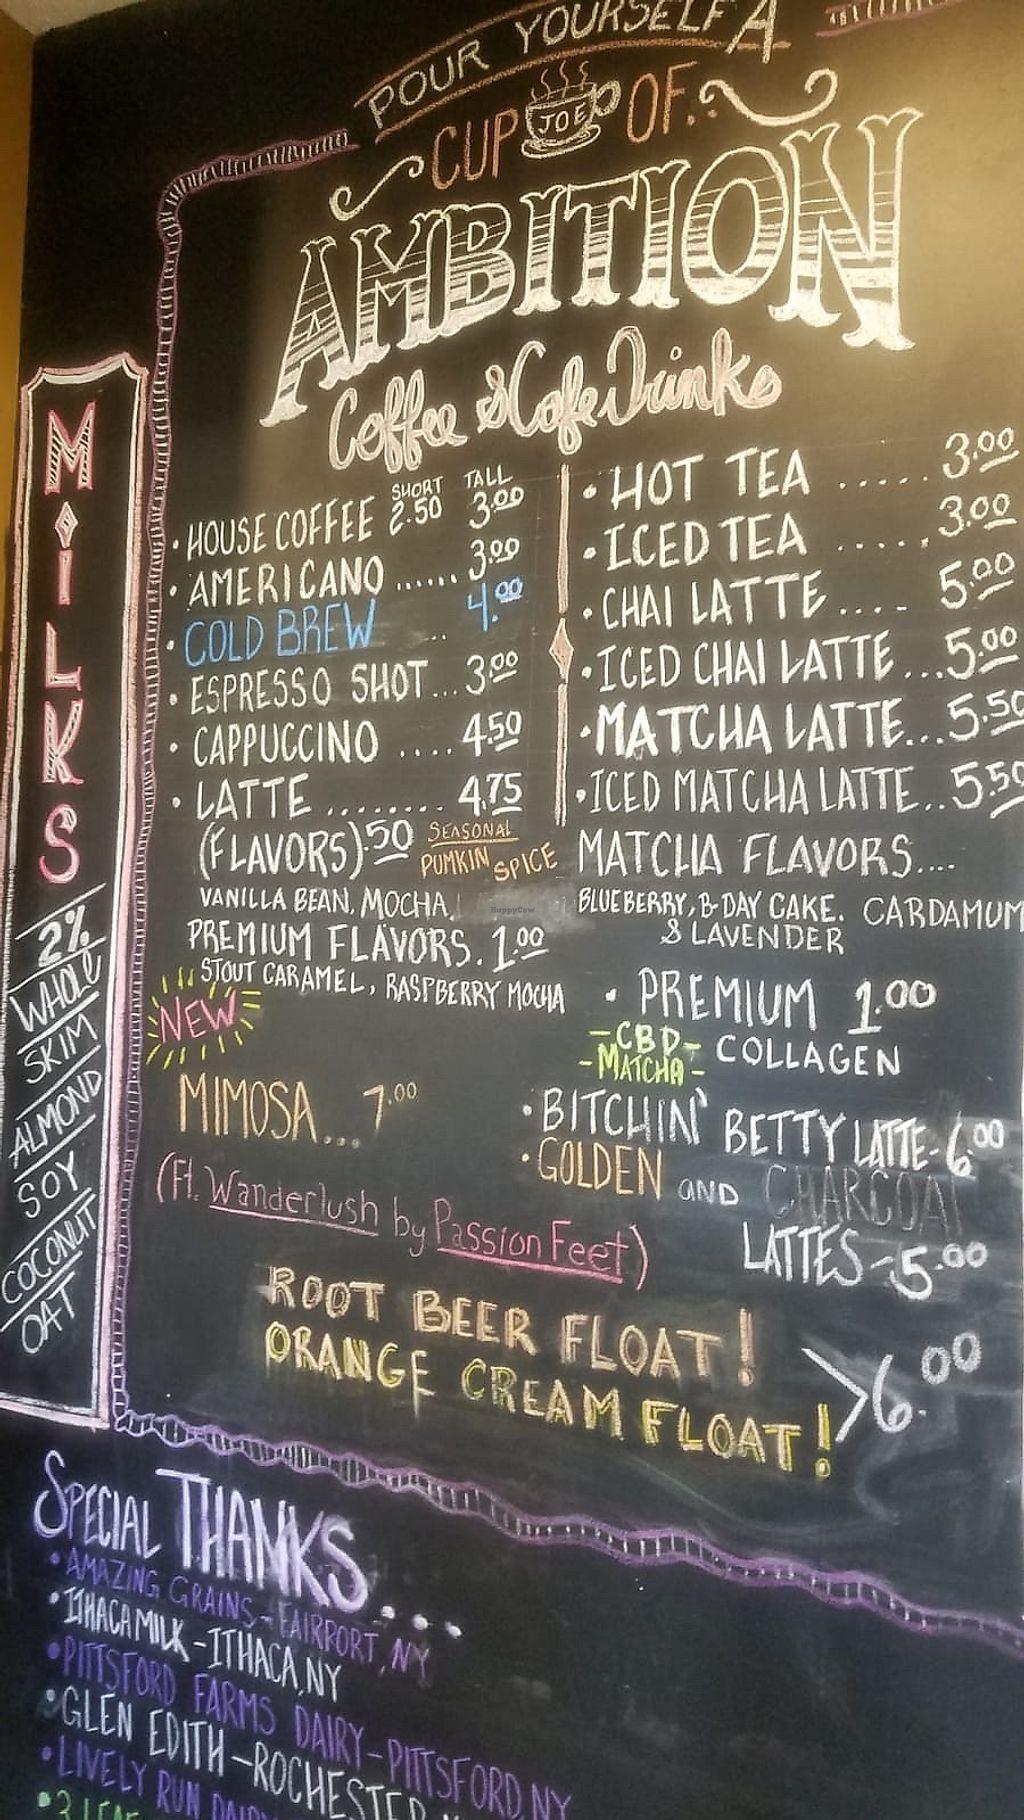 POUR YOURSELF A
CUP JOE OF..
AMBITION
Coffee & Cafe Drinks
MILKS
2%
WHOLE
SKIM
ALMOND
SOY
COCONUT
OAT
SHORT TALL
• HOUSE COFFEE 2.50 3.00
• AMERICANO ...... 3.00
• COLD BREW ... 4.00
• ESPRESSO SHOT... 3.00
• CAPPUCCINO .... 4.50
• LATTE ........ 4.75
(FLAVORS).50 SEASONAL
PUMKIN SPICE
VANILLA BEAN, MOCHA,
PREMIUM FLAVORS. 1.00
STOUT CARAMEL, RASPBERRY MOCHA
NEW
MIMOSA... 7.00
(Ft. Wanderlush by Passion Feet)
• HOT TEA ..... 3.00
• ICED TEA ...... 3.00
• CHAI LATTE .... 5.00
• ICED CHAI LATTE... 5.00
• MATCHA LATTE... 5.50
• ICED MATCHA LATTE.. 5.50
MATCHA FLAVORS....
BLUEBERRY, B-DAY CAKE. CARDAMUM
& LAVENDER
• PREMIUM 1.00
-CBD- COLLAGEN
-MATCHA-
• BITCHIN' BETTY LATTE- 6.00
• GOLDEN AND CHARCOAL
LATTES - 5.00
ROOT BEER FLOAT!
ORANGE CREAM FLOAT! >6.00
SPECIAL THANKS....
• AMAZING GRAINS - FAIRPORT, NY
• ITHACA MILK - ITHACA, NY
• PITTSFORD FARMS DAIRY - PITTSFORD, NY
• GLEN EDITH - ROCHESTER
• LIVELY RUN DAIRY
• 3 LEAF
HappyCow